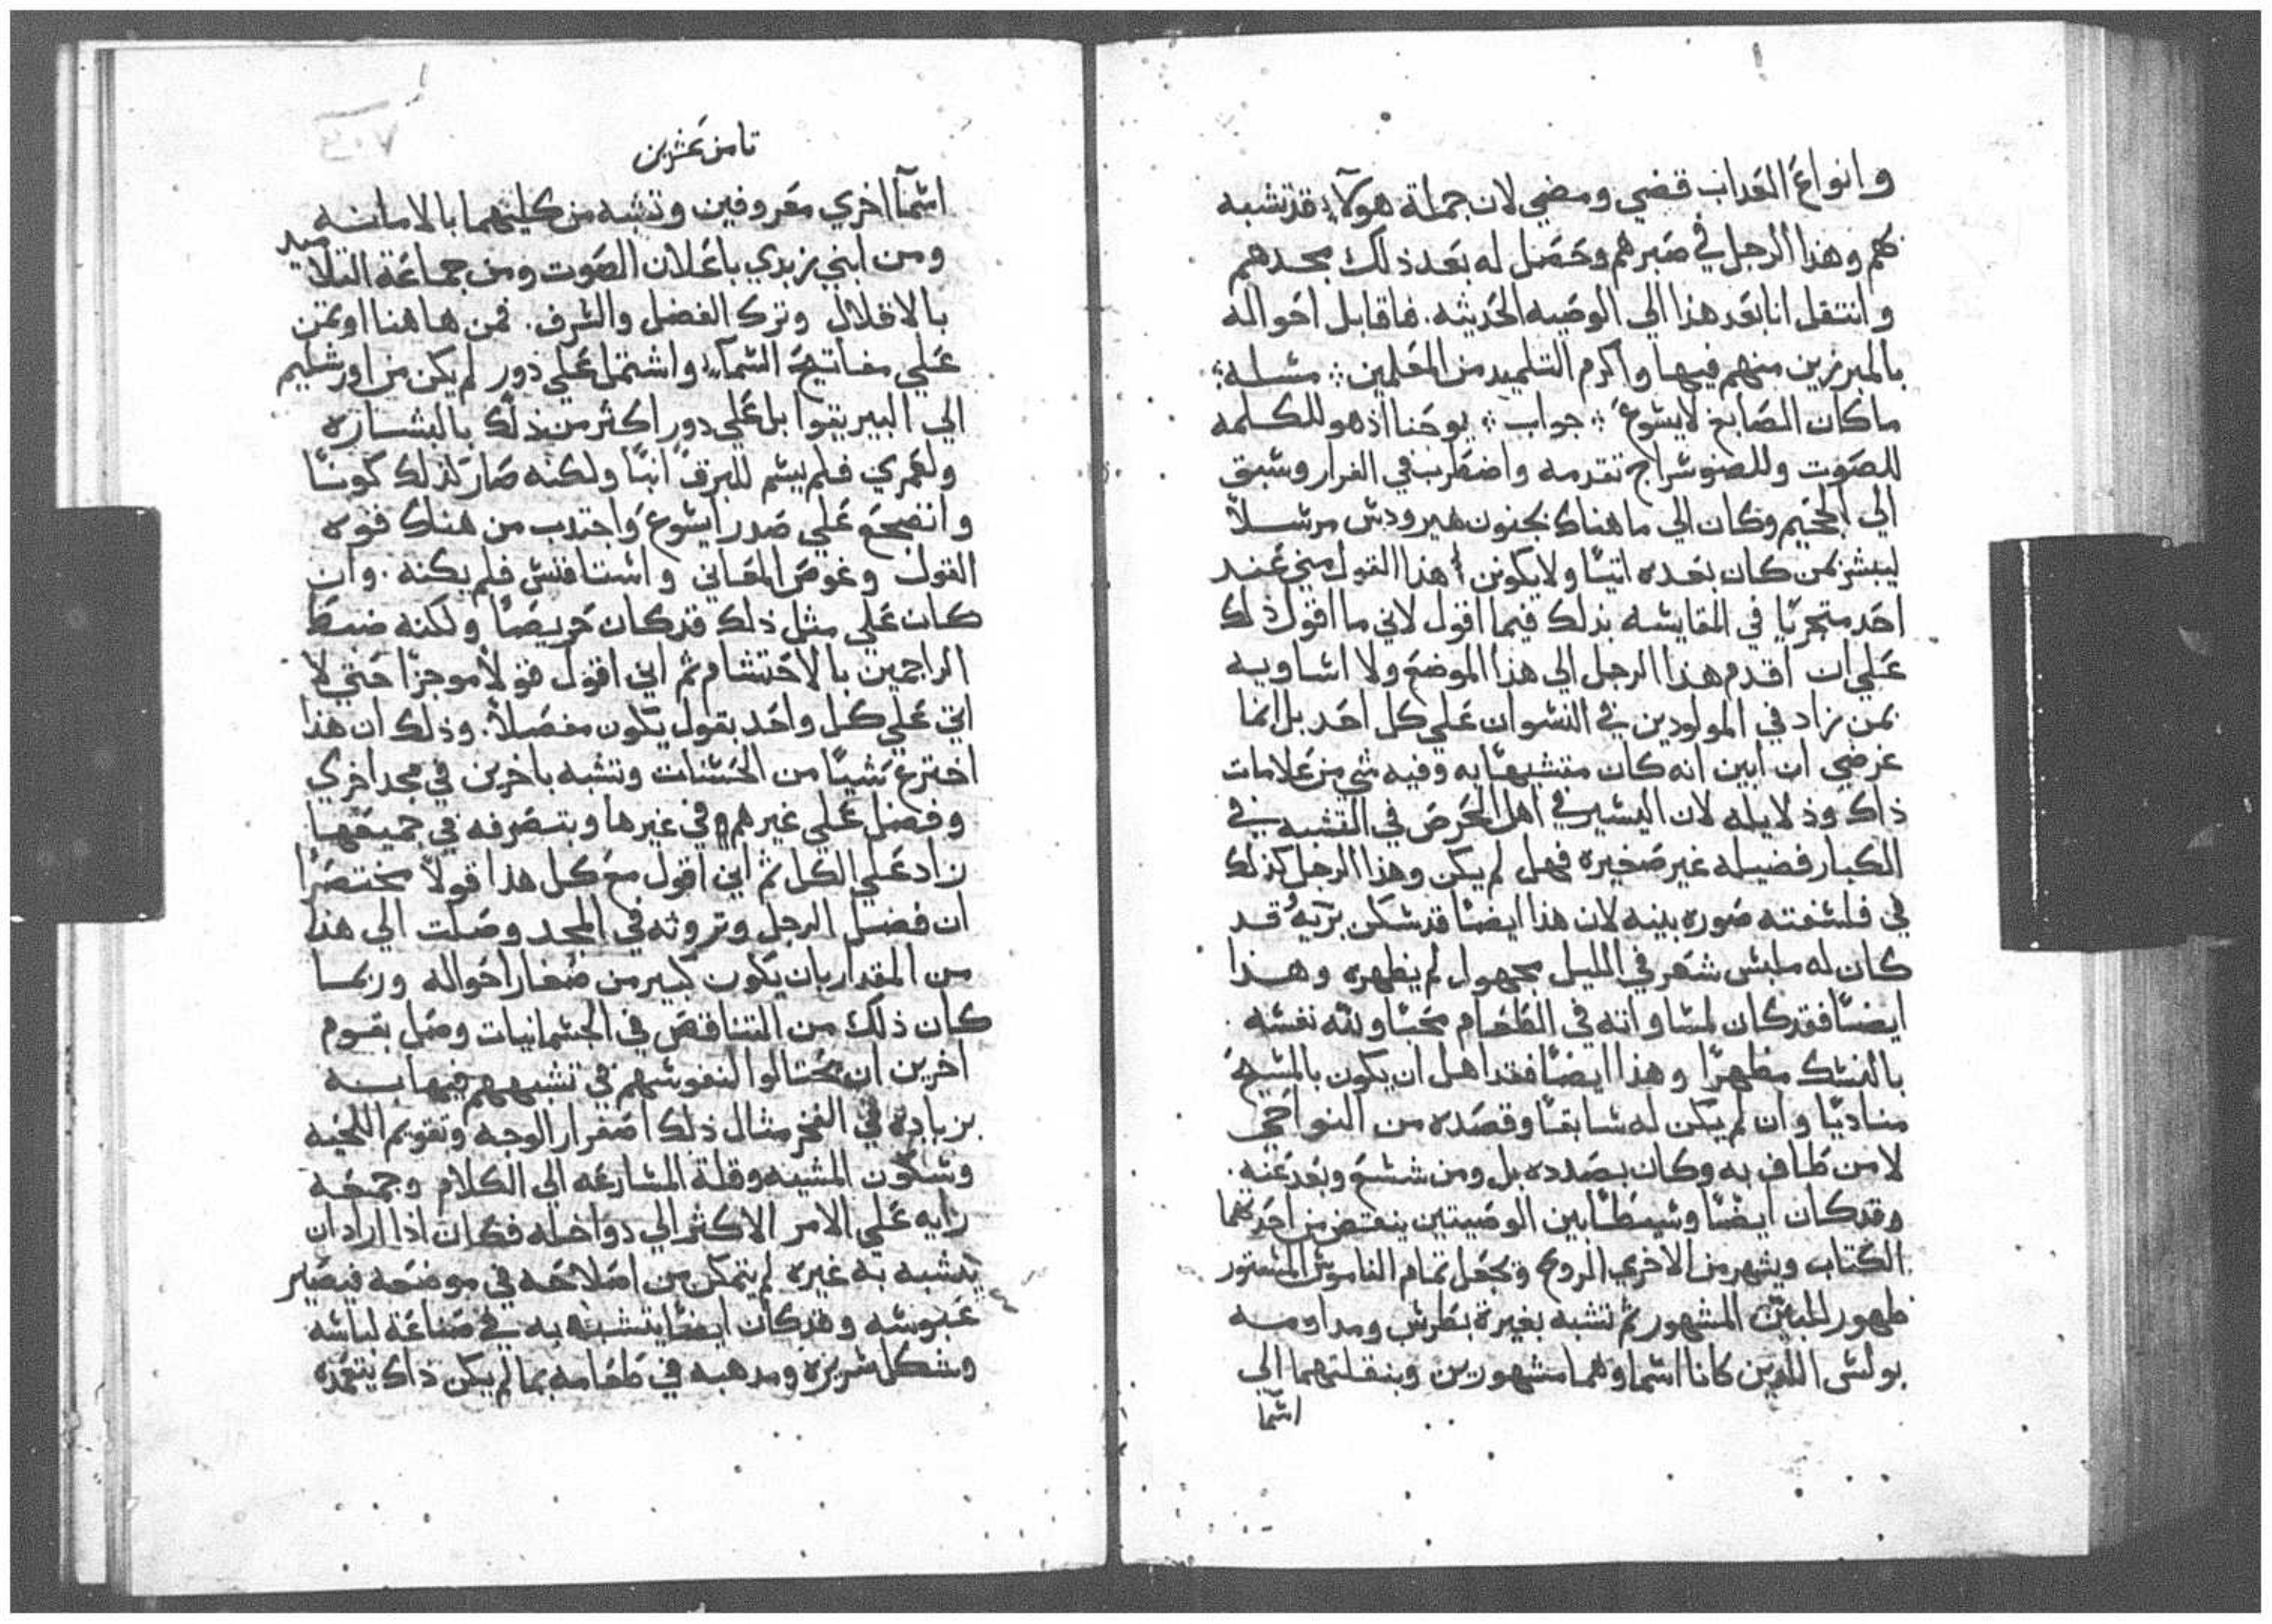 وانواع العداب قضي ومضي لان جملة هولآء قد تشبه
بهم وهذا الرجل في صبرهم وحصل له بعد ذلك مجدهم
وانتقل انا بعد هذا الي الوصيه الحديثه. فاقابل احواله
بالمبرزين منهم فيها واكرم التلميد من المعلمين ܀ مسله ܀
ما كان الصابغ لايسوع ܀ جواب ܀ يوحنا اذ هو للكلمه
للصوت وللضو سراج تقدمه واضطرب في القرار وسبق
الي الجحيم وكان الي ما هناك بجنون هيرودس مرسلاً
ليبشر بمن كان بعده اتيًا ولا يكونن هذا القول مني عند
احد متجريًا في المقايسه بذلك فيما اقول لاني ما اقول ذلك
علي ان اقدم هذا الرجل الي هذا الموضع ولا اساويه
بمن زاد في المولودين في النسوان علي كل احد بل انما
غرضي ان ابين انه كان متشبهًا به وفيه شي من علامات
ذاك ودلايله لان اليسير في اهل الحرص في التشبه في
الكبار فضيله غير صغيره فهل لم يكن وهذا الرجل كذلك
في فلسفته صوره بينه لان هذا ايضًا قد سكن برّيه قد
كان له ملبس شعر في الليل مجهول لم يظهره وهذا
ايضًا فقد كان لمساواته في الطعام محبًا ولله نفسه
بالنسك مطهرًا وهذا ايضًا فقد اهل ان يكون بالمسيح
مناديًا وان لم يكن له سابقًا وقصده من النواحي
لا من طاف به وكان بصدده بل ومن شسع وبعد عنه.
وقد كان ايضًا وسيطًا بين الوصيتين ينقض من احدتهما
الكتاب ويشهر من الاخري الروح ويجعل تمام الناموس المستور
ظهور المبيّن المشهور ثم تشبه بغيرة بطرس ومداومه
بولس اللدين كانا اسماوهما مشهورين وبنقلتهما الي
اسما
ثامن عشرين
اسمآ اخري معروفين وتشبه من كليتهما بالامانه
ومن ابني زبدي باعلان الصوت ومن جماعة التلاميد
بالاقلال وترك الفضل والشرف. فمن هاهنا اوتمن
علي مفاتيح السمآء واشتمل علي دور لم يكن من اورشليم
الي البيريقوا بل علي دور اكثر من ذلك بالبشاره
ولعمري فلم يسم للبرق ابنًا ولكنه صار كذلك كونًا
وانضجع علي صدر ايسوع واجتدب من هناك قوه
القول وغوص المعاني واستافنس فلم يكنه. وان
كان علي مثل ذلك قد كان حريصًا ولكنه ضبط
الراجمين بالاحتشام ثم اني اقول قولاً موجزًا حتي لا
اتي علي كل واحد بقول يكون مفصلاً. وذلك ان هذا
اخترع شيًا من الحسنات وتشبه باخرين في مجد اخري
وفضل علي غيرهم في غيرها وبتصرفه في جميعها
زاد علي الكل ثم اني اقول مع كل هذا قولاً مختصرًا
ان فضل الرجل وثروته في المجد وصلت الي هذا
من المقدار بان يكون كبير من صغار احواله وربما
كان ذلك من التناقص في الجسمانيات وصل بقوم
اخرين ان يحتالوا لنفوسهم في تشبههم فيها به
بزيادة في الفخر مثال ذلك اصفرار الوجه وتقويم اللحيه
وسكون المشيه وقلة المسارعه الي الكلام وجمعه
رايه علي الامر الاكثر الي دواخله فكان اذا اراد ان
يتشبه به غيره لم يتمكن من اصلاحه في موضعه فيصير
عبوسه وقد كان ايضًا يتشبه به في صناعة لباسه
وشكل سريره ومدهبه في طعامه بما لم يكن داك يتعمده